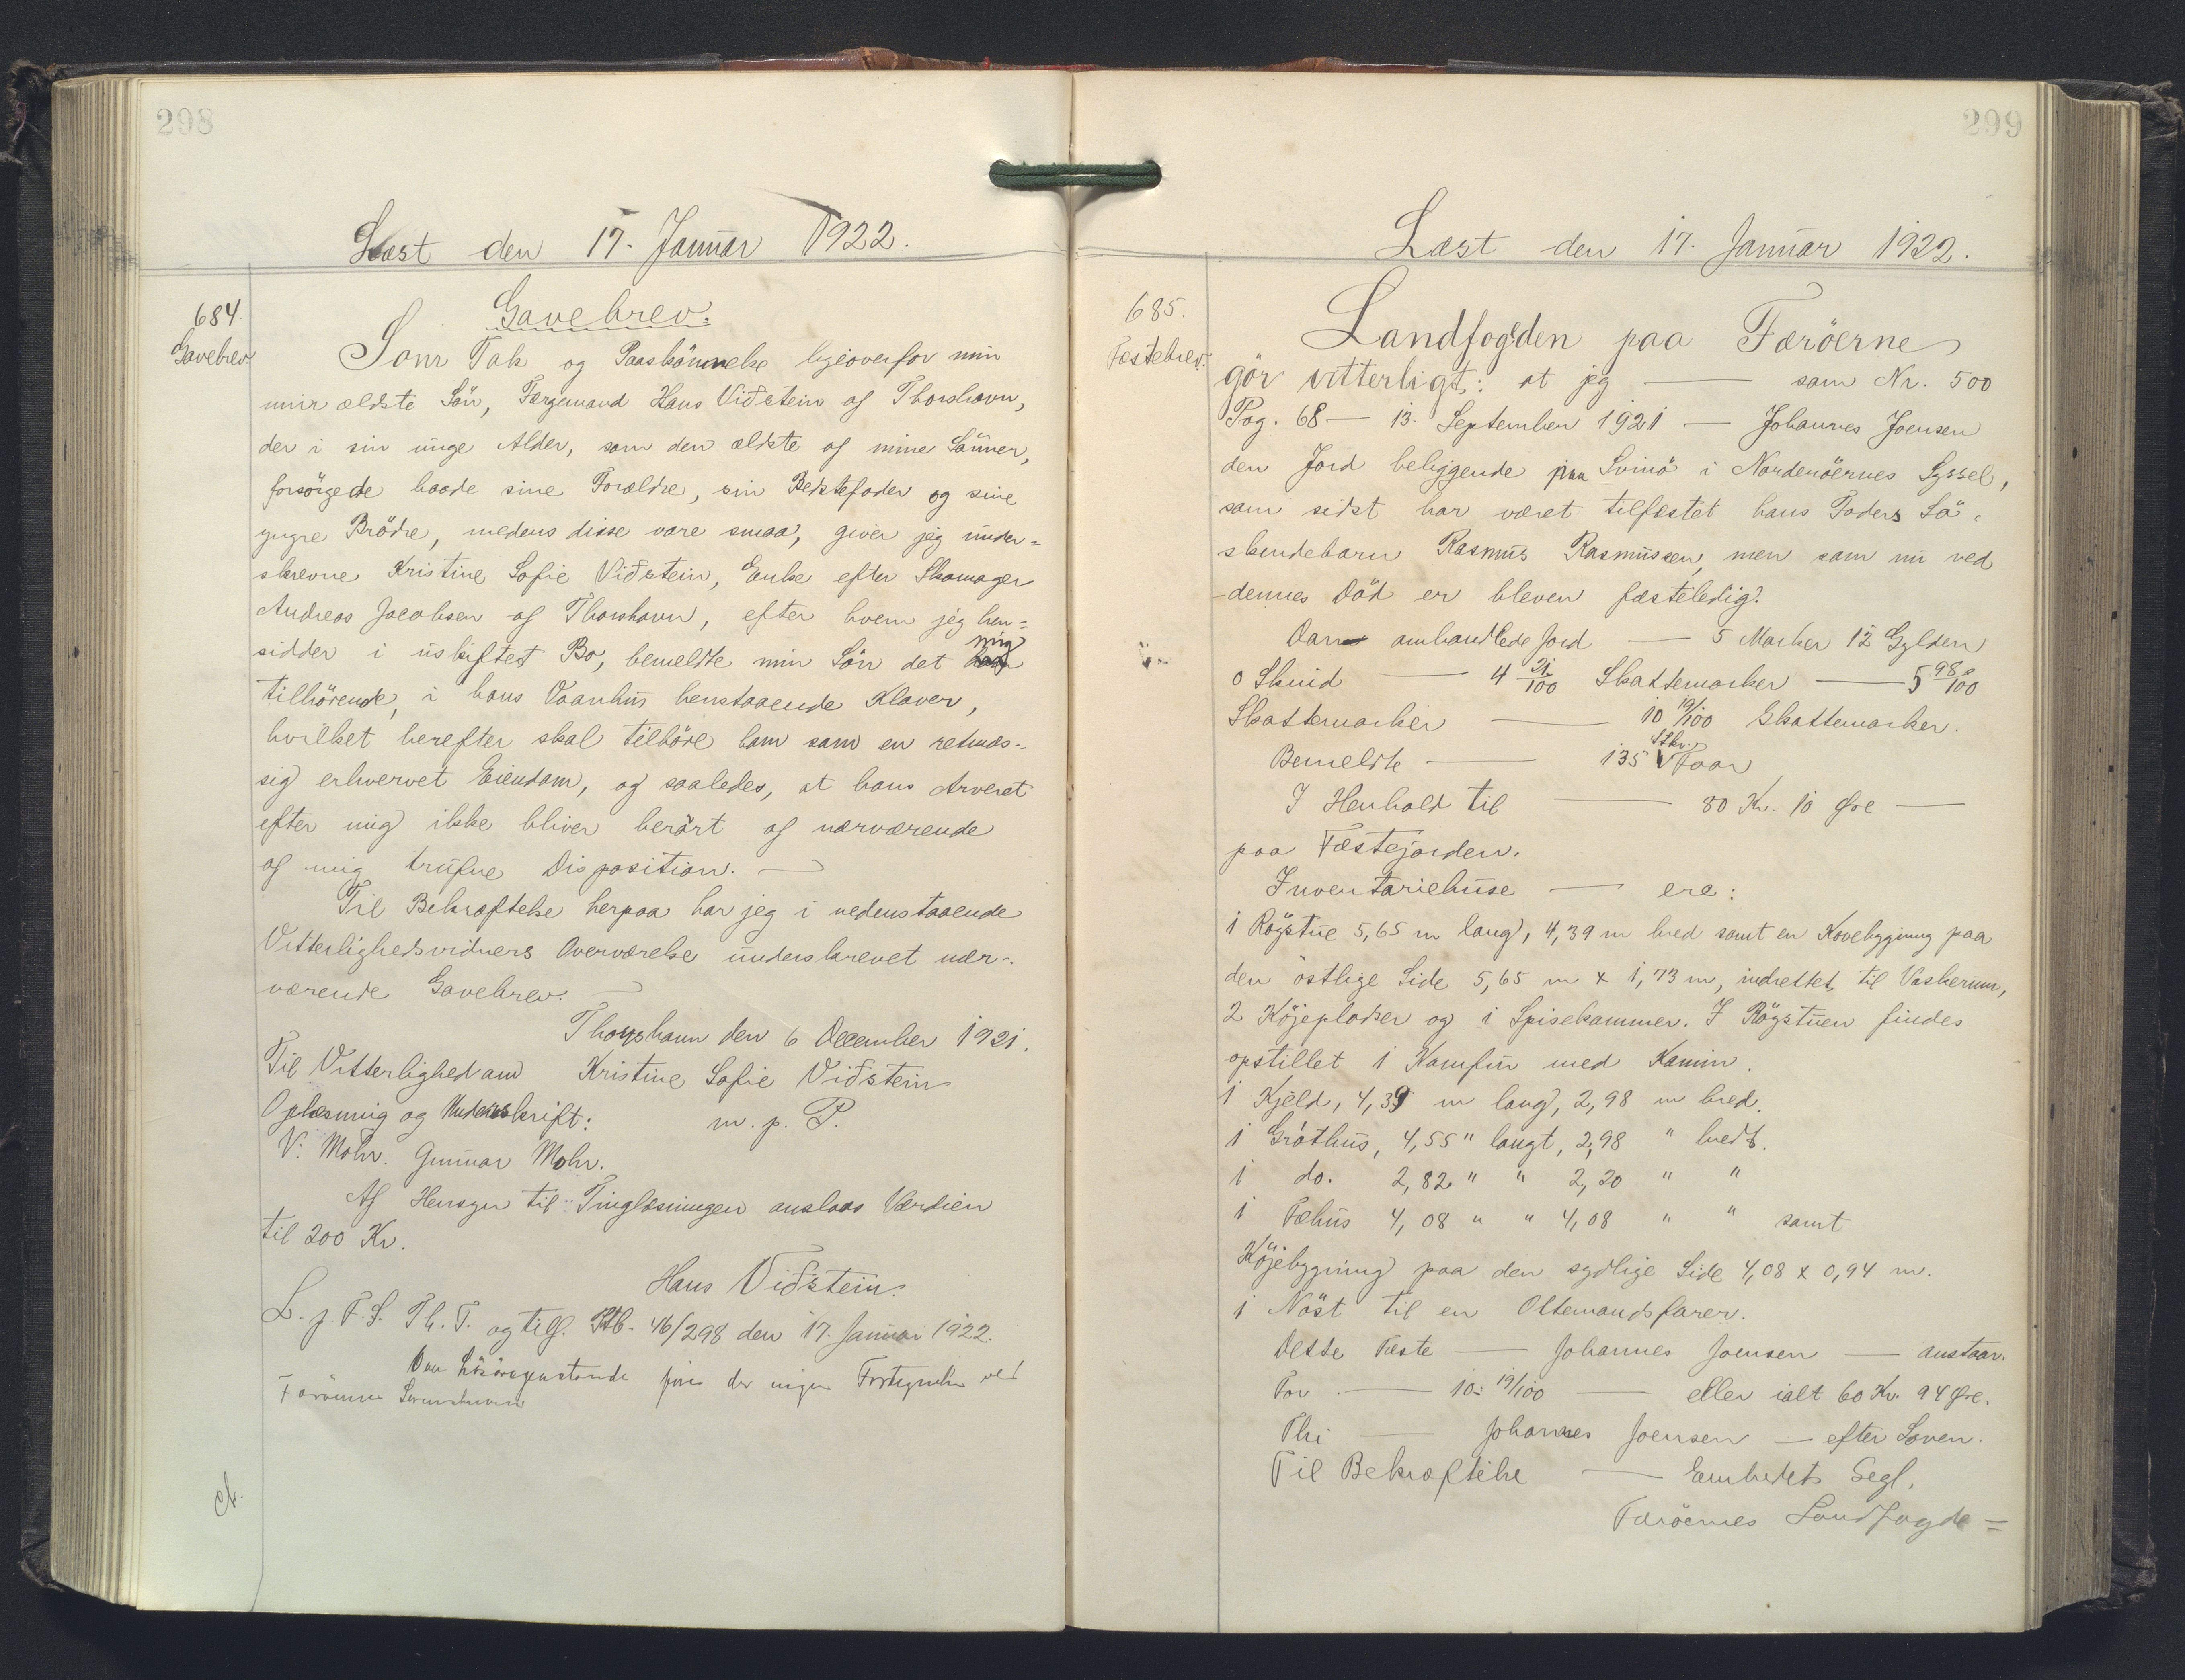 298
Læst den 17. Januar 1922.
684.
Gavebrev.
Gavebrev.
Som Tak og Paaskönnelse ligeoverfor min
min ældste Sön, Færgemand Hans Viðstein af Thorshavn,
der i sin unge Alder, som den ældste af mine Sönner,
forsörgede baade sine Forældre, sin Bedstefader og sine
yngre Brödre, medens disse vare smaa, giver jeg under=
skrevne Kristine Sofie Viðstein, Enke efter Skomager
Andreas Jacobsen af Thorshavn, efter hvem jeg hen=
sidder i uskiftet Bo, bemeldte min Sön det mig
tilhörende, i hans Vaanhus henstaaende Klaver,
hvilket herefter skal tilhöre ham som en retmæs-
sig erhvervet Eiendom, og saaledes, at hans Arveret
efter mig ikke bliver berört af nærværende
af mig trufne Disposition.
Til Bekræftelse herpaa har jeg i nedenstaaende
Vitterlighedsvidners Overværelse underskrevet nær-
værende Gavebrev.
Thorshavn den 6 December 1921.
Til Vitterlighed om Kristine Sofie Viðstein
Oplæsning og Underskrift: m. p. P.
V. Mohr. Gunnar Mohr.
Af Hensyn til Tinglæsningen anslaas Værdien
til 200 Kr.
Hans Viðstein.
L. p. F. S. Th. T. og tilf. Ptb. 46/298 den 17. Januar 1922.
Over Lösöregenstande föres der ingen Fortegnelse ved
Færöernes Sorenskriveri
ck.
299
Læst den 17. Januar 1922.
685.
Fæstebrev.
Landfogden paa Færöerne
gör vitterligt: at jeg — som Nr. 500
Pag. 68 — 13. September 1921 — Johannes Joensen
den Jord beliggende paa Svinö i Norderöernes Syssel,
som sidst har været tilfæstet hans Faders Sö-
skendebarn Rasmus Rasmussen, men som nu ved
dennes Död er bleven fæsteledig.
Den omhandlede Jord — 5 Marker 12 Gylden
0 Skind — 4 21/100 Skattemarker — 5 98/100
Skattemarker — 10 19/100 Skattemarker.
Bemeldte — 135 Stkr. Faar
I Henhold til — 80 Kr. 10 Øre —
paa Fæstejorden.
Inventariehuse — ere:
1 Rögstue 5,65 m lang, 4,39 m bred samt en Kovebygning paa
den östlige Side 5,65 m x 1,73 m, indrettet til Vaskerum,
2 Köjepladser og 1 Spisekammer. I Rögstuen findes
opstillet 1 Komfur med Kamin.
1 Kjeld, 4,39 m lang, 2,98 m bred.
1 Gróthus, 4,55 " langt, 2,98 " bredt.
1 do. 2,82 " " 2,20 " "
1 Fæhus 4,08 " " 4,08 " " samt
Köjebygning paa den sydlige Side 4,08 x 0,94 m.
1 Nöst til en Ottemandsfarer.
Dette Fæste — Johannes Joensen — anstaar.
For — 10 19/100 — eller ialt 60 Kr. 94 Øre.
Thi — Johannes Joensen — efter Loven.
Til Bekræftelse — Embedets Segl.
Færöernes Landfogde=